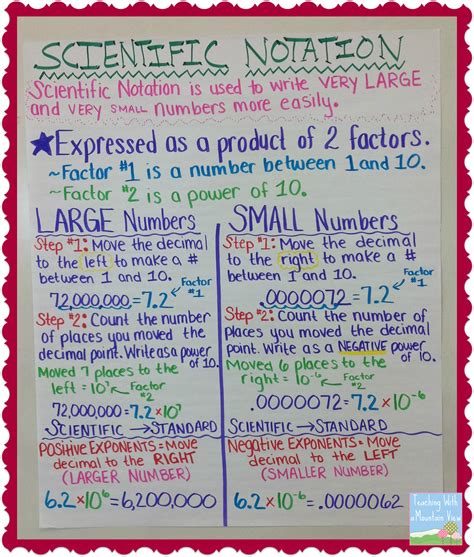 SCIENTIFIC NOTATION
Scientific Notation is used to write VERY LARGE
and VERY SMALL numbers more easily.
★Expressed as a product of 2 factors.
~Factor #1 is a number between 1 and 10.
~Factor #2 is a power of 10.
LARGE Numbers
Step #1: Move the decimal
to the left to make a #
between 1 and 10.
Factor #1
72,000,000 = 7.2
Step #2: Count the number
of places you moved the
decimal point. Write as a power
of 10.
Moved 7 places to the
left = 10⁷
Factor #2
72,000,000 = 7.2 x 10⁷
SCIENTIFIC → STANDARD
POSITIVE EXPONENTS = Move
decimal to the RIGHT
(LARGER NUMBER)
6.2 x 10⁶ = 6,200,000
SMALL Numbers
Step #1: Move the decimal
to the right to make a #
between 1 and 10.
Factor #1
.0000072 = 7.2
Step #2: Count the number of
places you moved the decimal
point. Write as a NEGATIVE power
of 10.
Moved 6 places to the
right = 10⁻⁶
Factor #2
.0000072 = 7.2 x 10⁻⁶
SCIENTIFIC → STANDARD
Negative EXPONENTS = Move
decimal to the LEFT
(SMALLER NUMBER)
6.2 x 10⁻⁶ = .0000062
Teaching With
a Mountain View